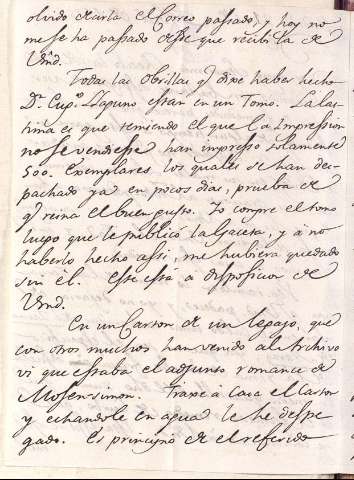 olvidó citarla el Correo passado, y hoy no
me se ha passado desde que recibí la de
Vmd.
Todas las obrillas q dixe haber hecho
Dn Eug.o Llaguno estan en un Tomo. La las-
tima es que temiendo el que la Impression
no se vendiesse han impresso solamente
500. Exemplares los quales se han des-
pachado ya en pocos dias, prueba de
q reina el buen gusto. Yo compre el tomo
luego que le publicó la Gazeta, y á no
haberlo hecho assi, me hubiera quedado
sin él. Este está a disposicion de
Vmd.
En un Carton de un legajo, que
con otros muchos han venido al Archivo
vi que estaba el adjunto romance de
Mosensimon. Traxe á Casa el Carton
y echandole en agua le he despe-
gado. Es principio de el referido